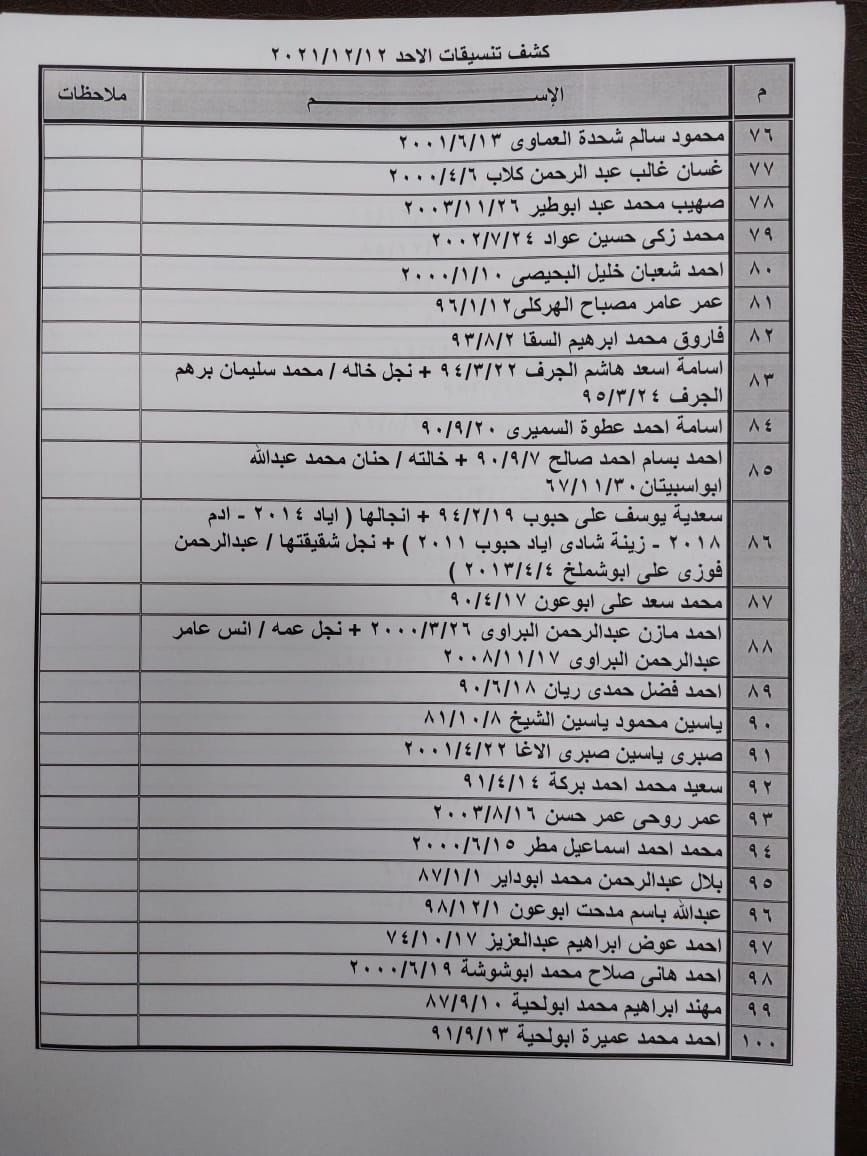 كشف تنسيقات الاحد ٢٠٢١/١٢/١٢
م الإســـــــــــــم ملاحظات
٧٦ محمود سالم شحدة العماوى ٢٠٠١/٦/١٣
٧٧ غسان غالب عبد الرحمن كلاب ٢٠٠٠/٤/٦
٧٨ صهيب محمد عبد ابوطير ٢٠٠٣/١١/٢٦
٧٩ محمد زكى حسين عواد ٢٠٠٢/٧/٢٤
٨٠ احمد شعبان خليل البحيصى ٢٠٠٠/١/١٠
٨١ عمر عامر مصباح الهركلى٩٦/١/١٢
٨٢ فاروق محمد ابرهيم السقا ٩٣/٨/٢
٨٣ اسامة اسعد هاشم الجرف ٩٤/٣/٢٢ + نجل خاله / محمد سليمان برهم
الجرف ٩٥/٣/٢٤
٨٤ اسامة احمد عطوة السميرى ٩٠/٩/٢٠
٨٥ احمد بسام احمد صالح ٩٠/٩/٧ + خالته / حنان محمد عبدالله
ابواسبيتان٦٧/١١/٣٠
٨٦ سعدية يوسف على حبوب ٩٤/٢/١٩ + انجالها ( اياد ٢٠١٤ - ادم
٢٠١٨ - زينة شادى اياد حبوب ٢٠١١ ) + نجل شقيقتها / عبدالرحمن
فوزى على ابوشملخ ٢٠١٣/٤/٤ )
٨٧ محمد سعد على ابوعون ٩٠/٤/١٧
٨٨ احمد مازن عبدالرحمن البراوى ٢٠٠٠/٣/٢٦ + نجل عمه / انس عامر
عبدالرحمن البراوى ٢٠٠٨/١١/١٧
٨٩ احمد فضل حمدى ريان ٩٠/٦/١٨
٩٠ ياسين محمود ياسين الشيخ ٨١/١٠/٨
٩١ صبرى ياسين صبرى الاغا ٢٠٠١/٤/٢٢
٩٢ سعيد محمد احمد بركة ٩١/٤/١٤
٩٣ عمر روحى عمر حسن ٢٠٠٣/٨/١٦
٩٤ محمد احمد اسماعيل مطر ٢٠٠٠/٦/١٥
٩٥ بلال عبدالرحمن محمد ابوداير ٨٧/١/١
٩٦ عبدالله باسم مدحت ابوعون ٩٨/١٢/١
٩٧ احمد عوض ابراهيم عبدالعزيز ٧٤/١٠/١٧
٩٨ احمد هانى صلاح محمد ابوشوشة ٢٠٠٠/٦/١٩
٩٩ مهند ابراهيم محمد ابولحية ٨٧/٩/١٠
١٠٠ احمد محمد عميرة ابولحية ٩١/٩/١٣